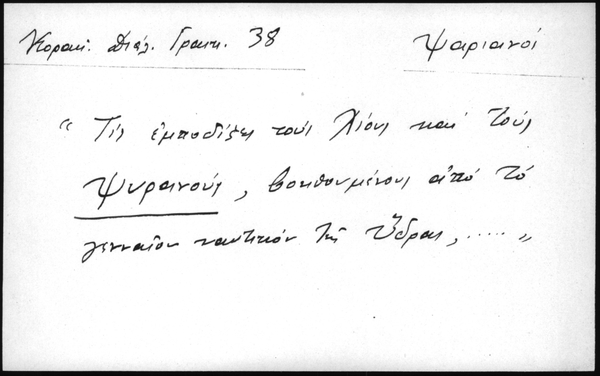 Κοραή. Διάλ. Γραικ. 38 Ψαριανοί
“ Τίς ἐμποδίζει τούς Χίους καί τούς
Ψυριανούς, βοηθουμένους ἀπό τό
γενναῖον ναυτικόν τῆς Ὕδρας, ..... „